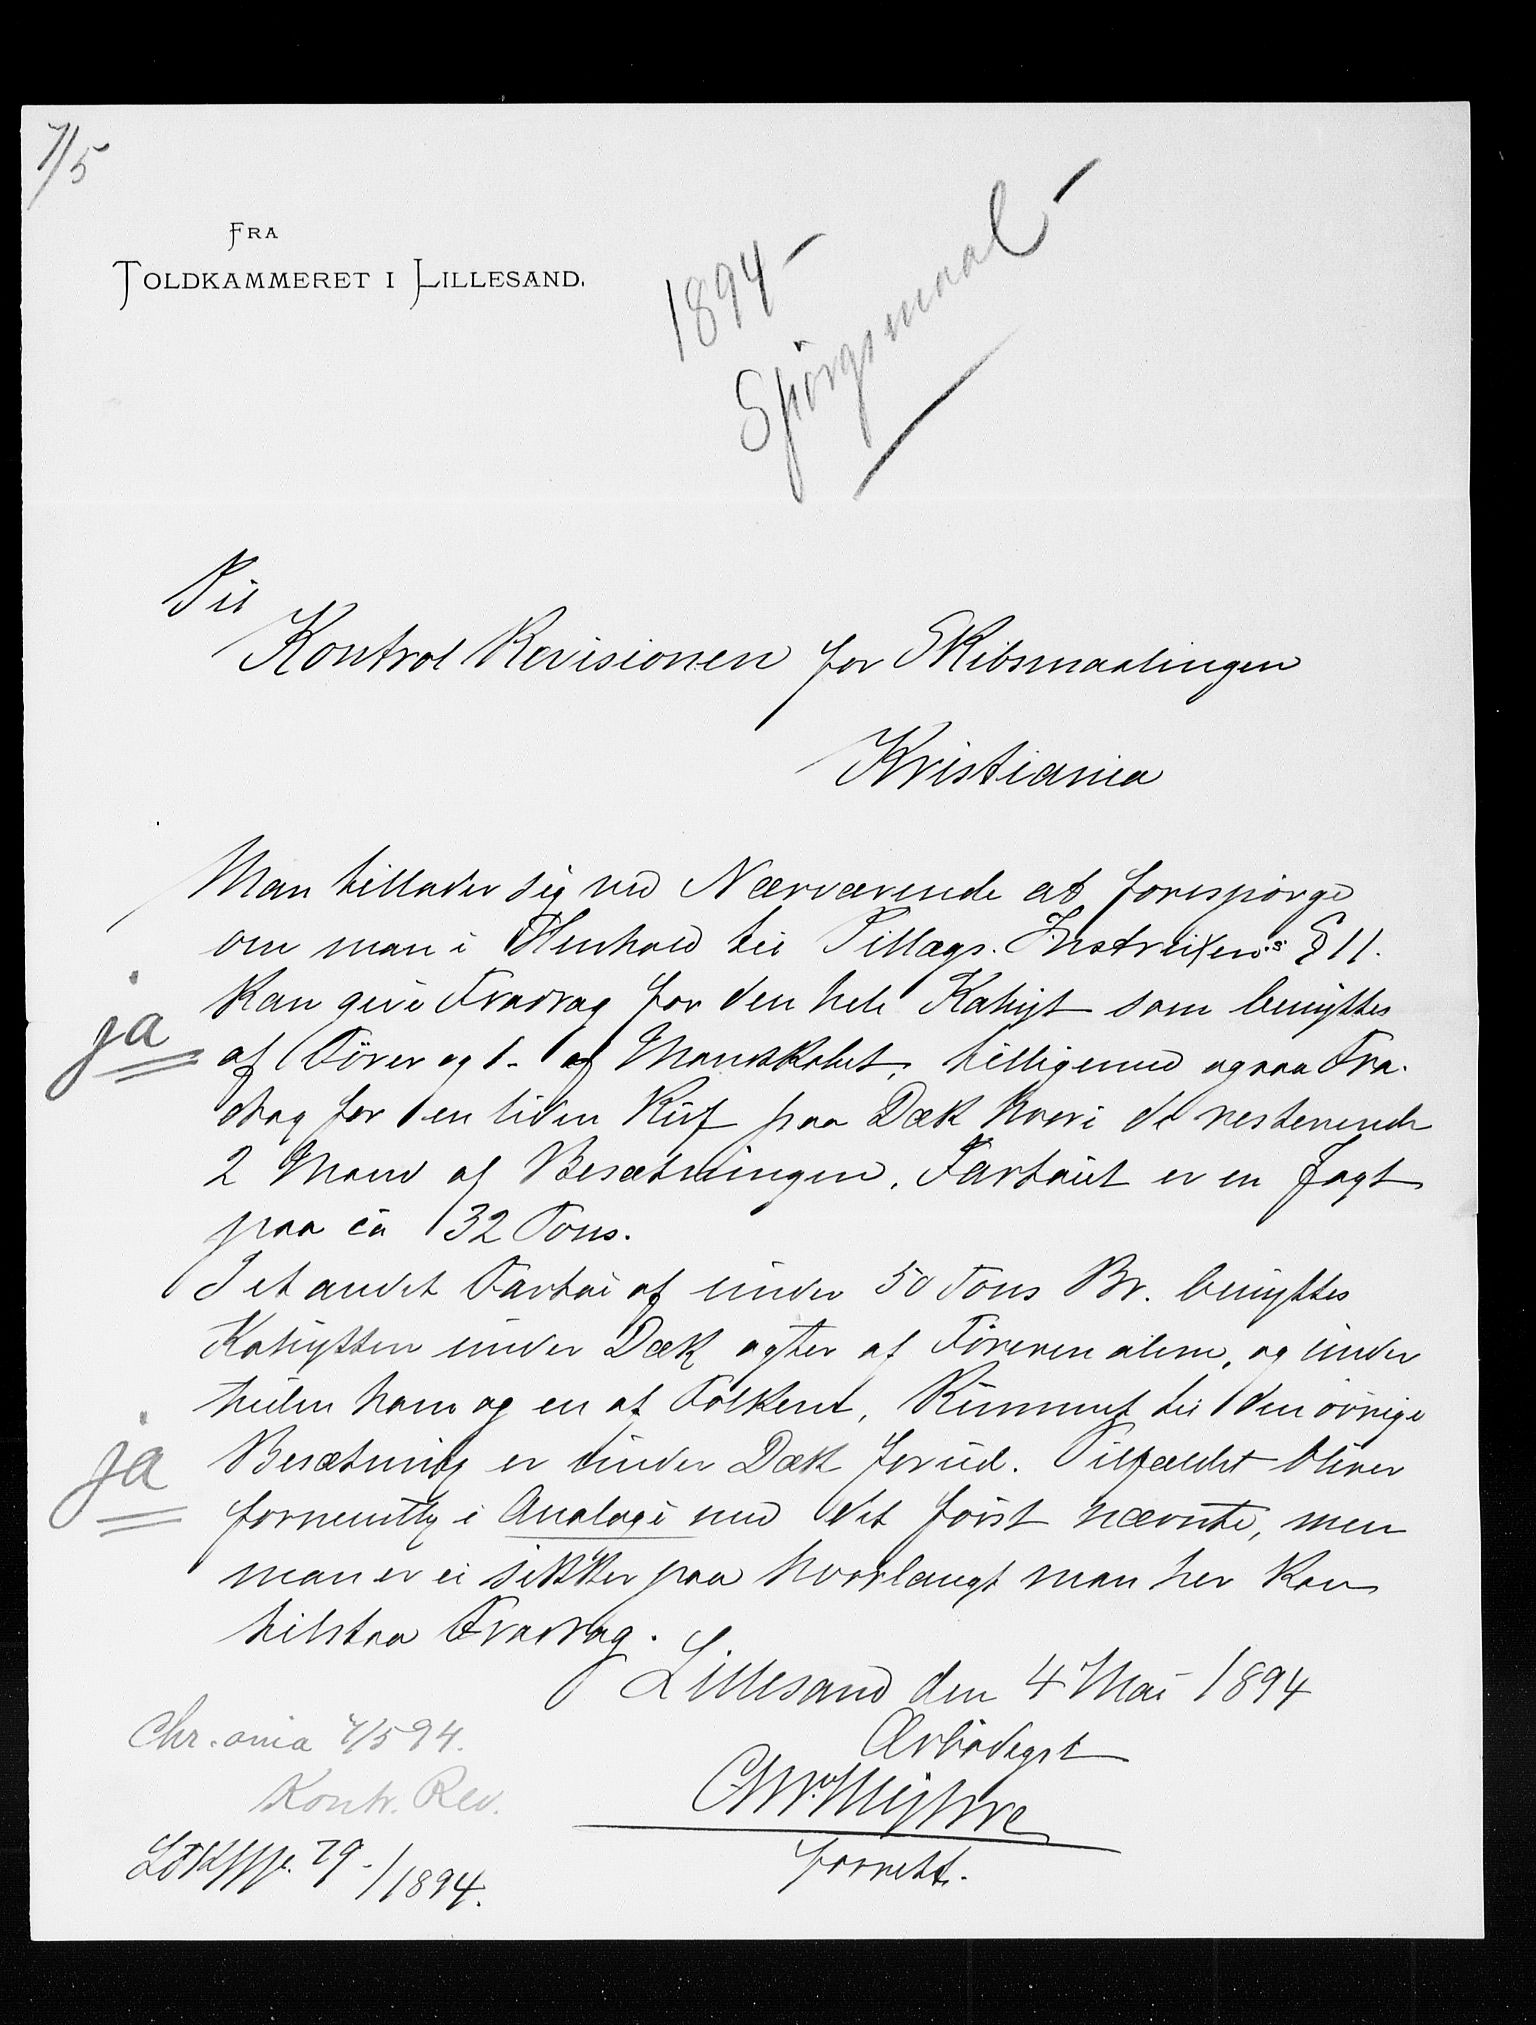 7/5
FRA
TOLDKAMMERET I LILLESAND.
1894 –
Spörgsmaal –
Til
Kontrol Revisionen for Skibsmaalingen
Kristiania
Man tillader sig ved Nærværende at forespørge
om man i Henhold til Tillægs. Instruxens § 11.
kan give Fradrag for den hele Kahyt som benyttes
ja
af Fører og 1. af Mandskabet, tilligemed ogsaa Fra-
drag for en liden Ruf paa Dæk hvori de resterende
2 Mand af Besætningen. Fartøiet er en Jagt
paa ca 32 Tons.
I et andet Fartøi af under 50 Tons Br. benyttes
Kahytten under Dæk agter af Føreren alene, og under
tiden ham og en af Folkene, Rummet til den øvrige
ja
Besætning er under Dæk forud. Tilfældet bliver
formentlig i Analogi med det først nævnte, men
man er ei sikker paa hvorlangt man her kan
tilstaa Fradrag.
Lillesand den 4 Mai 1894
Ærbødigst
forrett.
Chr.ania 7/5 94.
Kontr. Rev.
29-/1894.